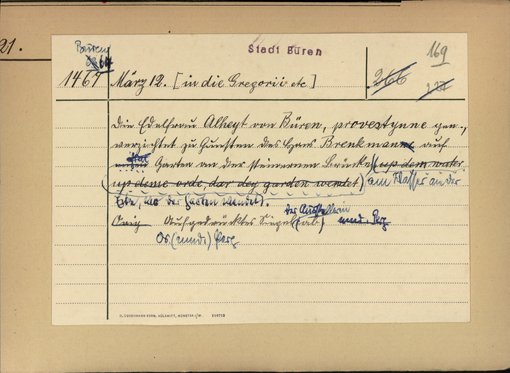 21.
Büren
Stadt Büren
169
1467 März 12. [in die Gregorii etc]
266
227
Die Edelfrau Alheyt von Büren, provestynne gen.,
verzichtet zu Gunsten des Hans Brenkmann auf
Garten an der steinernen Brücke (up dem water
up deme orde, dar dey garden wendet) am Wasser an der
Ecke, wo der Garten wendet).
der Ausstellerin
Orig. Aufgedrücktes Siegel (ab)
Or. (mnd.) Perg